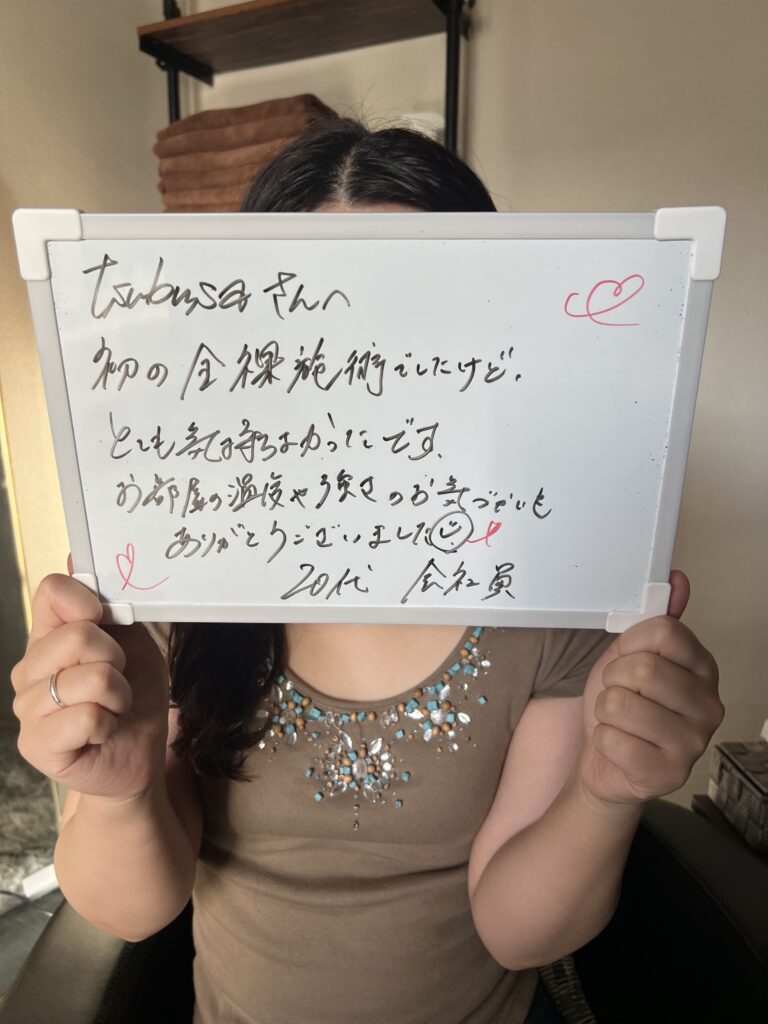 tsubasaさんへ
初の全裸施術でしたけど、
とても気持ちよかったです。
お部屋の温度や強さのお気づかいも
ありがとうございました
20代 会社員